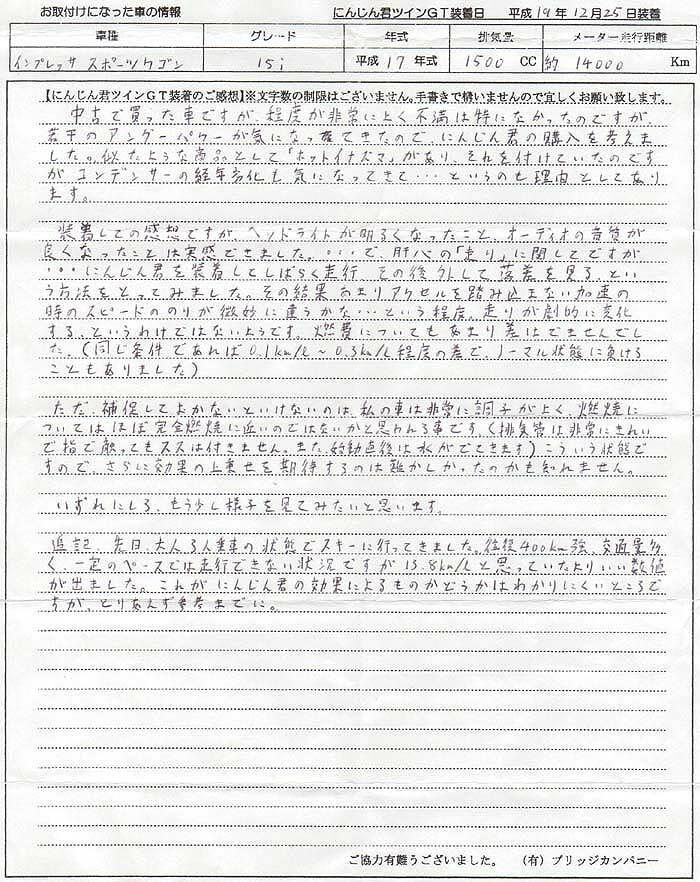 お取付けになった車の情報 にんじん君ツインGT装着日 平成19年12月25日装着
車種 グレード 年式 排気量 メーター走行距離
インプレッサ スポーツワゴン 15i 平成 17 年式 1500 CC 約 14000 Km
【にんじん君ツインGT装着のご感想】※文字数の制限はございません。手書きで構いませんので宜しくお願い致します。
中古で買った車ですが、程度が非常によく不満は特になかったのですが、
若干のアンダーパワーが気になってきたので、にんじん君の購入を考えま
した。似たような商品として「ホットイナズマ」があり、それを付けていたのです
がコンデンサーの経年劣化も気になってきて・・・というのも理由としてあり
ます。
装着しての感想ですが、ヘッドライトが明るくなったこと、オーディオの音質が
良くなったことは実感できました。・・・で、肝心の「走り」に関してですが
・・・にんじん君を装着してしばらく走行、その後外して落差を見る、とい
う方法をとってみました。その結果あまりアクセルを踏み込まない加速の
時のスピードののりが微妙に違うかな・・・という程度。走りが劇的に変化
する、というわけではないようです。燃費についてもあまり差はでませんでし
た。(同じ条件であれば0.1km/L～0.3km/L程度の差で、ノーマル状態に負ける
こともありました)
ただ、補足しておかないといけないのは、私の車は非常に調子がよく、燃焼に
ついてはほぼ完全燃焼に近いのではないかと思われる事です。(排気管は非常にきれい
で指で触ってもススは付きません。また、始動直後は水がでてきます)こういう状態で
すので、さらに効果の上乗せを期待するのは難かしかったのかも知れません。
いずれにしろ、もう少し様子を見てみたいと思います。
追記、先日、大人3人乗車の状態でスキーに行ってきました。往復400km強、交通量多
く、一定のペースでは走行できない状況ですが13.8km/Lと思っていたよりいい数値
が出ました。これが にんじん君の効果によるものかどうかはわかりにくいところで
すが、とりあえず参考までに。
ご協力有難うございました。 (有)ブリッジカンパニー